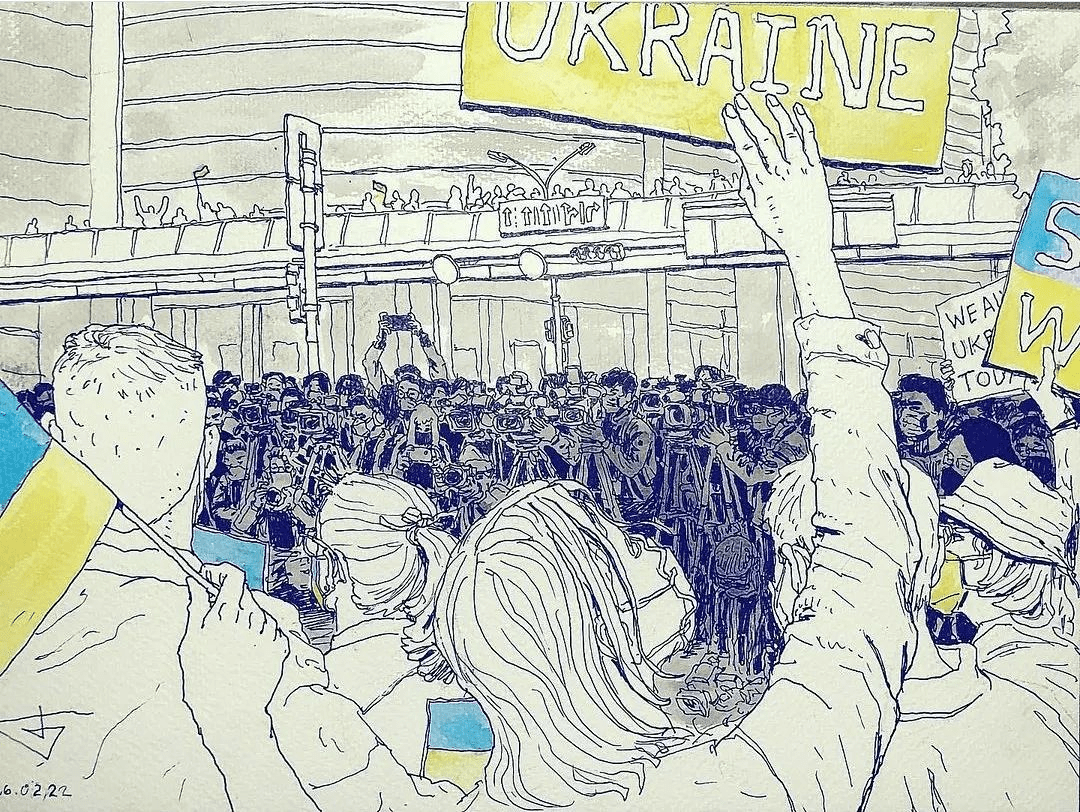 UKRAINE
S
W
WE A
UKR
TOD
6.02.22